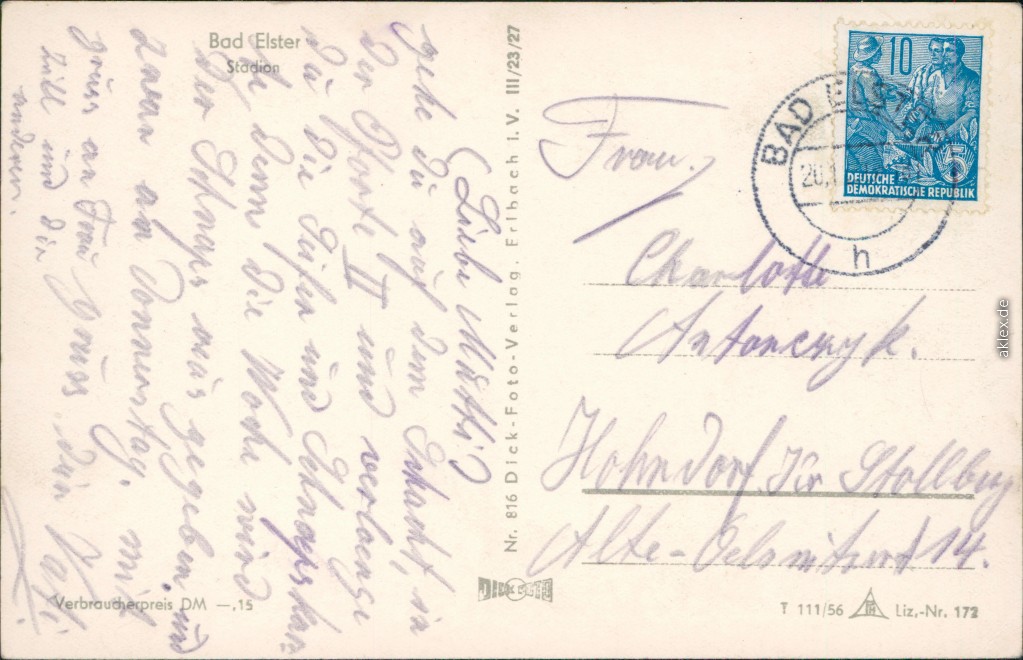 Bad Elster
Stadion
(Liebe Mutti!)
gehe Du auf dem Schacht, in
der Pforte II und verlange
Du die Seifen und Schnapskar
te denn die Woche wird
der Schnaps aus gegeben und
zwar am Donnerstag. mit
gruss an Frau
und die
anderen.
Verbraucherpreis DM —,15
Nr. 816 Dick-Foto-Verlag. Erlbach i. V. III/23/27
DICK
10
5
DEUTSCHE
DEMOKRATISCHE REPUBLIK
BAD ELSTER
20.
h
Frau.
Charlotte
Antonczyk.
Hohndorf, Kr Stollberg
Alte-Oelsnitzerst 14.
T 111/56
Liz.-Nr. 172
aklex.de